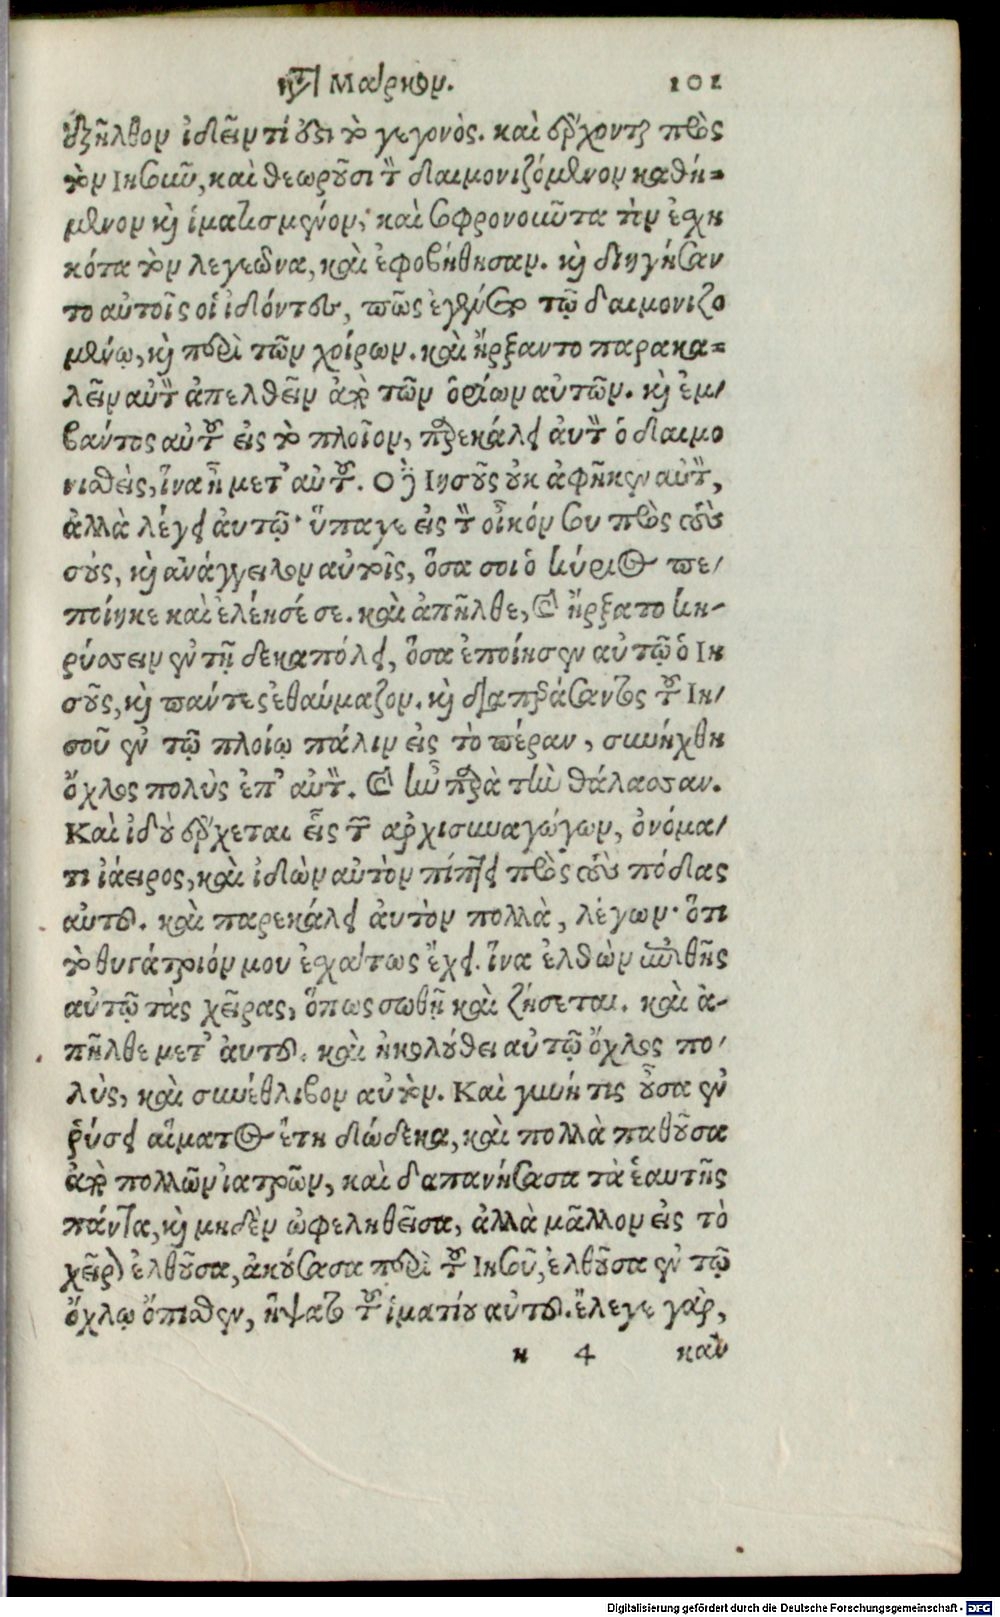 κατὰ Μάρκον. 101
ἐξῆλθον ἰδεῖν τί ἐστι τὸ γεγονὸς. καὶ ἔρχονται πρὸς
τὸν Ιησοῦν, καὶ θεωροῦσι τὸν δαιμονιζόμενον καθή-
μενον καὶ ἱματισμένον, καὶ σωφρονοῦντα τὸν ἐχη
κότα τὸν λεγεῶνα, καὶ ἐφοβήθησαν. καὶ διηγήσαν
το αὐτοῖς οἱ ἰδόντες, πῶς ἐγένετο τῷ δαιμονιζο
μένῳ, καὶ περὶ τῶν χοίρων. καὶ ἤρξαντο παρακα-
λεῖν αὐτὸν ἀπελθεῖν ἀπὸ τῶν ὁρίων αὐτῶν. καὶ ἐμ-
βάντος αὐτοῦ εἰς τὸ πλοῖον, παρεκάλει ἀυτὸν ὁ δαιμο
νισθεὶς, ἵνα ᾖ μετ' αὐτοῦ. Ο δὲ Ιησοῦς οὐκ ἀφῆκεν αὐτὸν,
ἀλλὰ λέγει ἀυτῷ· ὕπαγε εἰς τὸν οἶκόν σου πρὸς τοὺς
σούς, καὶ ἀνάγγειλον αὐτοῖς, ὅσα σοι ὁ κύριος πε-
ποίηκε καὶ ἐλέησέ σε. καὶ ἀπῆλθε, καὶ ἤρξατο κη-
ρύσσειν ἐν τῇ δεκαπόλει, ὅσα ἐποίησεν αὐτῷ ὁ Ιη
σοῦς, καὶ πάντες ἐθαύμαζον. καὶ διαπεράσαντος τοῦ Ιη-
σοῦ ἐν τῷ πλοίῳ πάλιν εἰς τὸ πέραν, συνήχθη
ὄχλος πολὺς ἐπ' αὐτὸν. καὶ ἦν παρὰ τὴν θάλασσαν.
Καὶ ἰδοὺ ἔρχεται εἷς τῶν ἀρχισυναγώγων, ὀνόμα-
τι ἰάειρος, καὶ ἰδὼν αὐτὸν πίπτει πρὸς τοὺς πόδας
αὐτοῦ. καὶ παρεκάλει ἀυτὸν πολλὰ, λέγων· ὅτι
τὸ θυγάτριόν μου ἐσχάτως ἔχει. ἵνα ἐλθὼν ἐπιθῇς
αὐτῷ τὰς χεῖρας, ὅπως σωθῇ καὶ ζήσεται. καὶ ἀ-
πῆλθε μετ' ἀυτοῦ. καὶ ἠκολούθει αὐτῷ ὄχλος πο-
λὺς, καὶ συνέθλιβον αὐτὸν. Καὶ γυνή τις οὖσα ἐν
ῥύσει αἵματος ἔτη δώδεκα, καὶ πολλὰ παθοῦσα
ἀπὸ πολλῶν ἰατρῶν, καὶ δαπανήσασα τὰ ἑαυτῆς
πάντα, καὶ μηδὲν ὠφεληθεῖσα, ἀλλὰ μᾶλλον εἰς τὸ
χεῖρον ἐλθοῦσα, ἀκούσασα περὶ τοῦ Ιησοῦ, ἐλθοῦσα ἐν τῷ
ὄχλῳ ὄπισθεν, ἥψατο τοῦ ἱματίου αὐτοῦ. ἔλεγε γάρ,
κ 4 κἂν
Digitalisierung gefördert durch die Deutsche Forschungsgemeinschaft - DFG